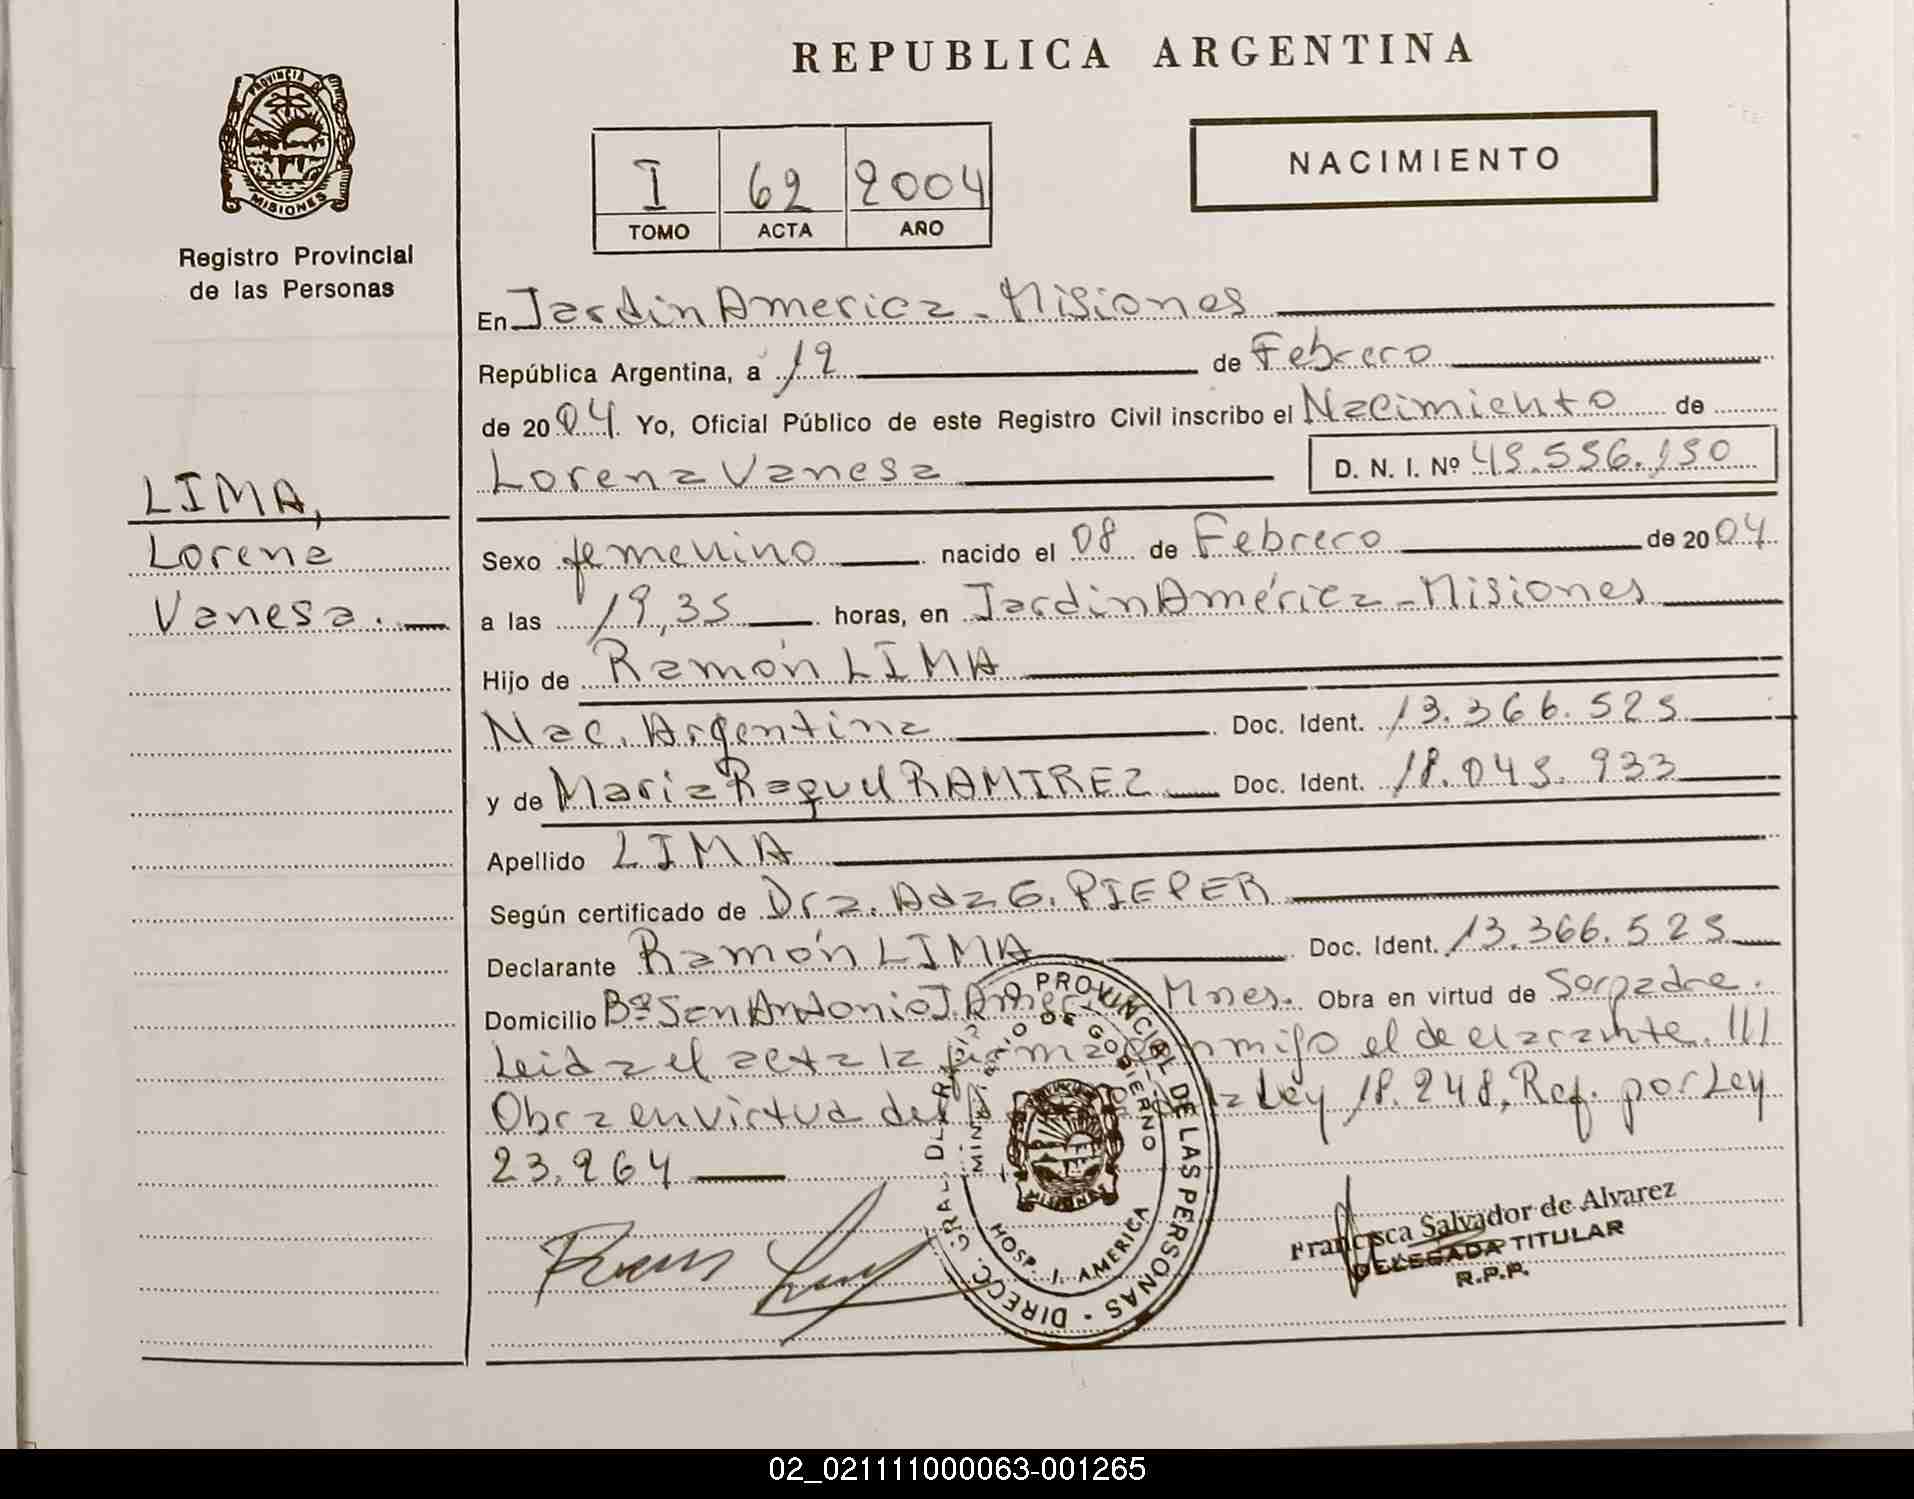 REPUBLICA ARGENTINA
PROVINCIA DE
MISIONES
Registro Provincial
de las Personas
I 62 2004
TOMO ACTA AÑO
NACIMIENTO
LIMA,
Lorena
Vanesa.
En Jardin America - Misiones
República Argentina, a 12 de Febrero
de 2004. Yo, Oficial Público de este Registro Civil inscribo el Nacimiento de
Lorena Vanesa D. N. I. Nº
Sexo femenino nacido el 08 de Febrero de 2004
a las 19,35 horas, en Jardin América - Misiones
Hijo de Ramón LIMA
Nac. Argentina Doc. Ident. 13.366.525
y de Maria Raquel RAMIREZ Doc. Ident. 18.045.933
Apellido LIMA
Según certificado de Dra. Ada G. PIEPER
Declarante Ramón LIMA Doc. Ident. 13.366.525
Domicilio Bº San Antonio J. Amér Mnes. Obra en virtud de Ser padre.
Leida el acta la firma conmigo el declarante. III
Obra en virtud del la Ley 18.248, Ref. por Ley
23.264
DIRECC. GRAL. DEL REGISTRO PROVINCIAL DE LAS PERSONAS
MINISTERIO DE GOBIERNO
MISIONES
HOSP. J. AMERICA
Francisca Salvador de Alvarez
DELEGADA TITULAR
R.P.P.
02_021111000063-001265